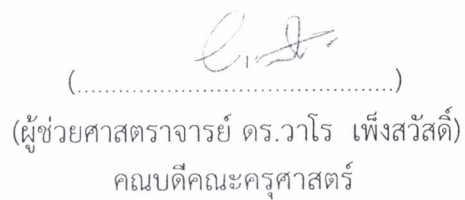 (............................................)
(ผู้ช่วยศาสตราจารย์ ดร.วาโร เพ็งสวัสดิ์)
คณบดีคณะครุศาสตร์